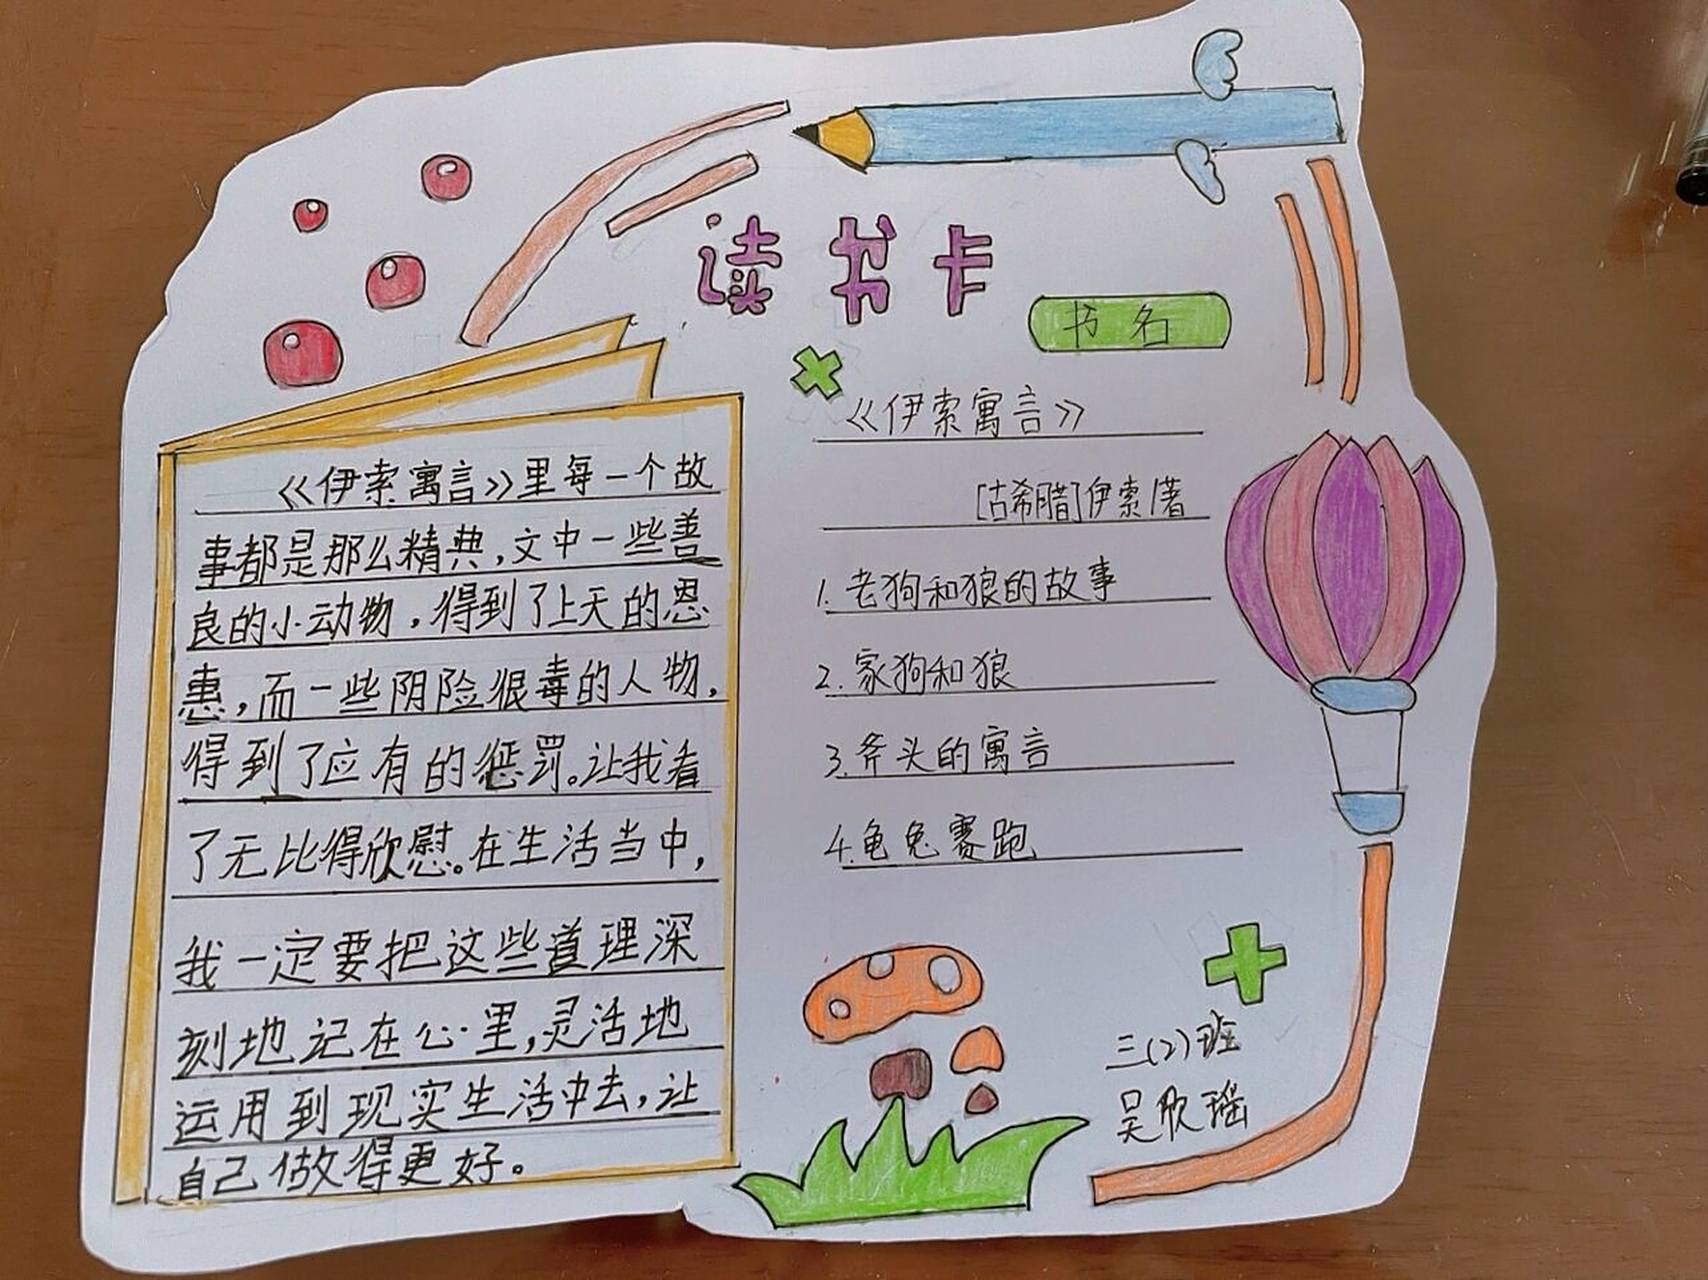 读书卡
书名
《伊索寓言》
[古希腊]伊索/著
1.老狗和狼的故事
2.家狗和狼
3.斧头的寓言
4.龟兔赛跑
《伊索寓言》里每一个故
事都是那么精典,文中一些善
良的小动物,得到了上天的恩
惠,而一些阴险狠毒的人物,
得到了应有的惩罚。让我看
了无比得欣慰。在生活当中,
我一定要把这些道理深
刻地记在心里,灵活地
运用到现实生活中去,让
自己做得更好。
三(2)班
吴欣瑶